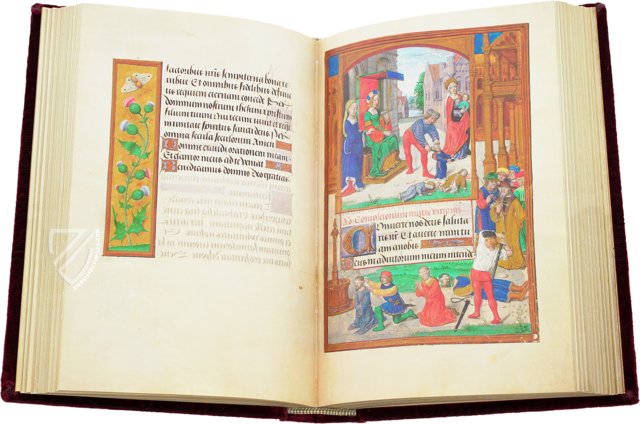 factoribus n͞ris sempiterna bona re
tribue Et omnibus fidelibus defunc
tis requiem eternam concede Per
dominum nostrum ihesum xpristum
filium tuum Qui tecum viuit et reg
nat
spiritus sancti deus Per
omnia secula seculorum Amen
Domine exaudi orationem meam
Et clamor meus ad te veniat
Benedicamus domino Deo gratias
Ad Completorium
Conuerte nos deus saluta
ris n͞r Et auerte iram tuam
a nobis
Deus in adiutorium meum intende